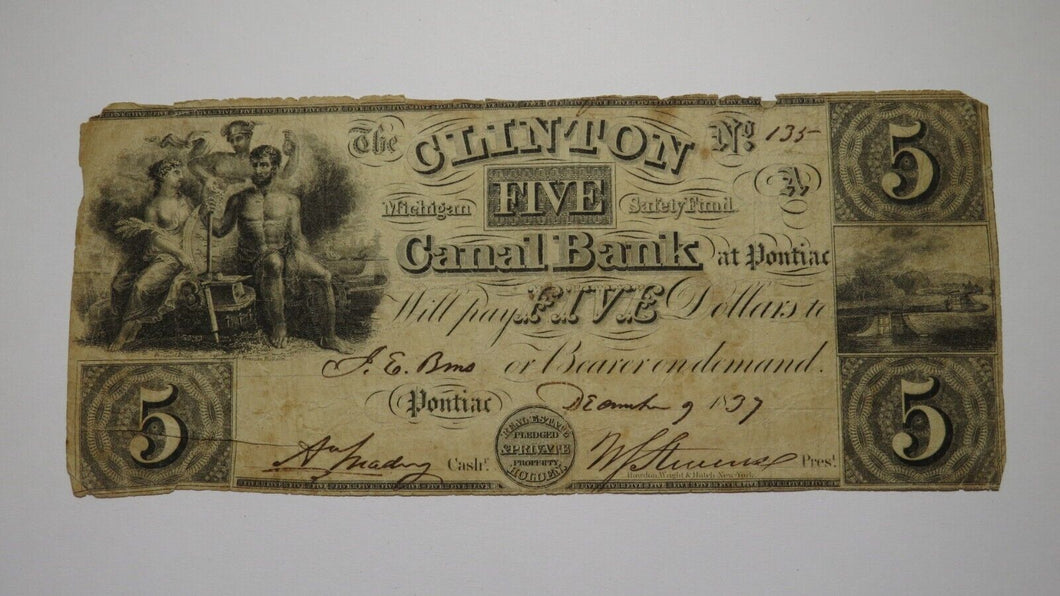 The CLINTON No. 135
A
Michigan FIVE Safety Fund.
Canal Bank at Pontiac
Will pay FIVE Dollars to
or Bearer on demand.
Pontiac December 9 1837
REAL ESTATE
PLEDGED
& PRIVATE
PROPERTY
HOLDEN
Cashr.
Prest.
5
5
5